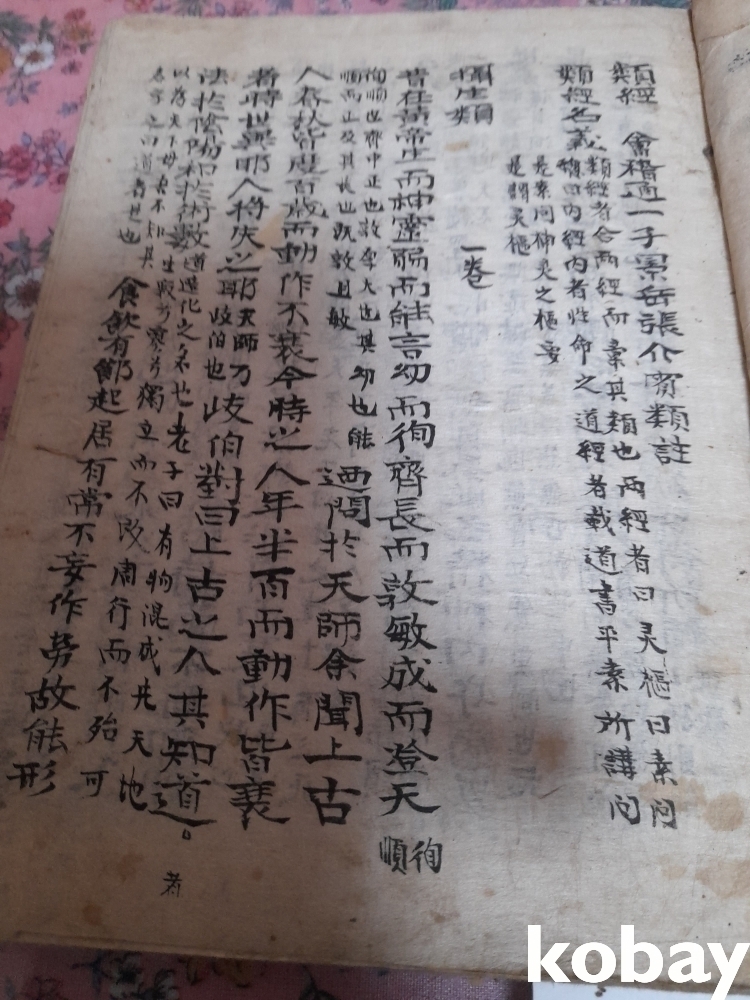 類經 會稽通一子景岳張介賓類註
類經名義 類經者合兩經而彙其類也兩經者曰灵樞曰素問
緫曰內經內者性命之道經者載道書平素所講問
是素問神灵之樞要
是謂灵樞
攝生類 一卷
昔在黃帝生而神靈弱而能言幼而徇齊長而敦敏成而登天
徇順
徇順也齊中正也敦厚大也其幼也能
順而正及其長也既敦且敏
迺問於天師余聞上古
人春秋皆度百歲而動作不衰今時之人年半百而動作皆衰
者時世異耶人將失之耶
天師乃
歧伯也
歧伯對曰上古之人其知道
者
法於陰陽和於術數
道造化之名也老子曰有物混成先天地
生寂兮寥兮獨立而不改周行而不殆可
以為天下母吾不知其
名字之曰道者是也
食飲有節起居有常不妄作勞故能形
kobay